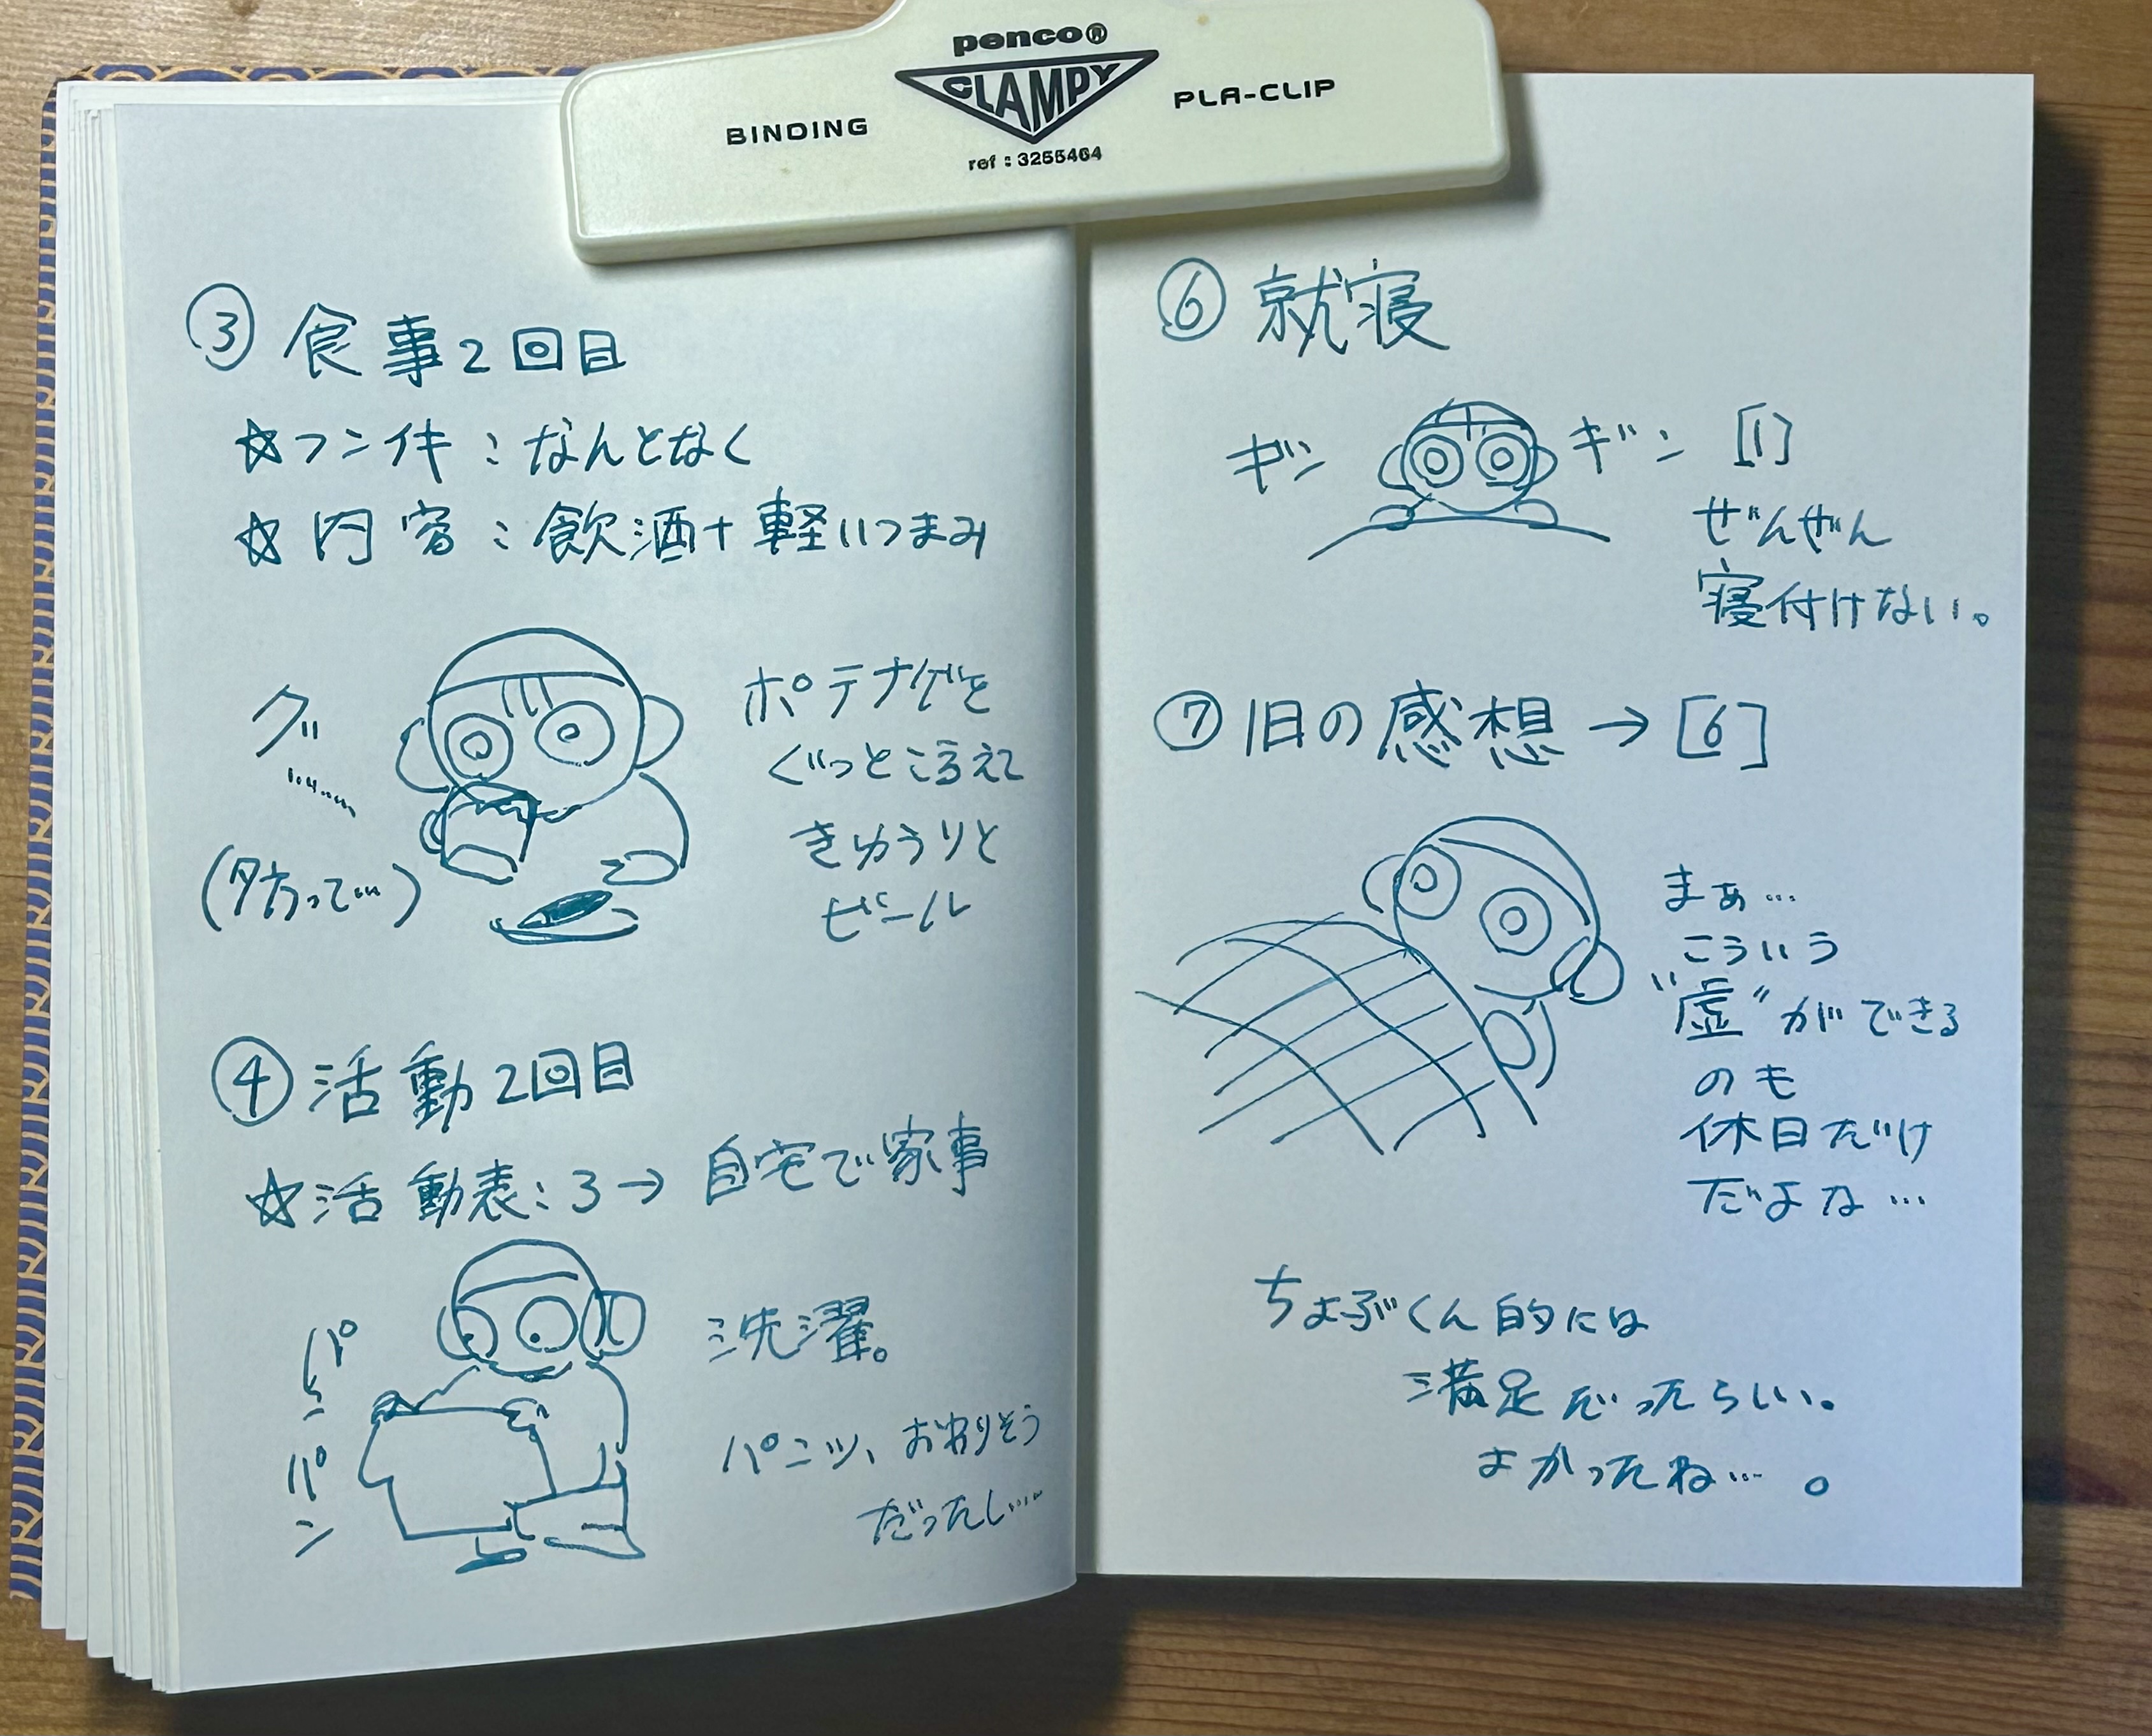 penco®
CLAMPY
BINDING
PLA-CLIP
ref : 3255464
③ 食事2回目
☆フンイキ：なんとなく
☆内容：飲酒＋軽いつまみ
グッ……
(妨って…)
ポテナゲを
ぐっとこらえて
きゅうりと
ビール
④ 活動2回目
☆活動表：3→ 自宅で家事
パン
パン
洗濯。
パンツ、おわりそう
だったし…
⑥ 就寝
ギン
ギン
[1]
ぜんぜん
寝付けない。
⑦ 1日の感想→[6]
まぁ…
こういう
"虚"ができる
のも
休日だけ
だよな…
ちょぶくん的には
満足だったらしい。
よかったね…。